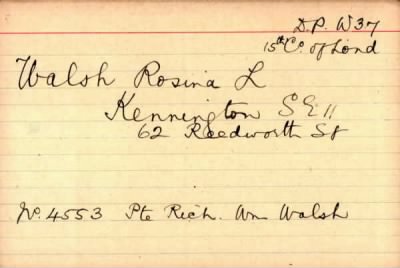 D.P. W37
15th Co. of Lond
Walsh Rosina L
Kennington S E 11
62 Reedworth St
No. 4553 Pte Rich. Wm Walsh